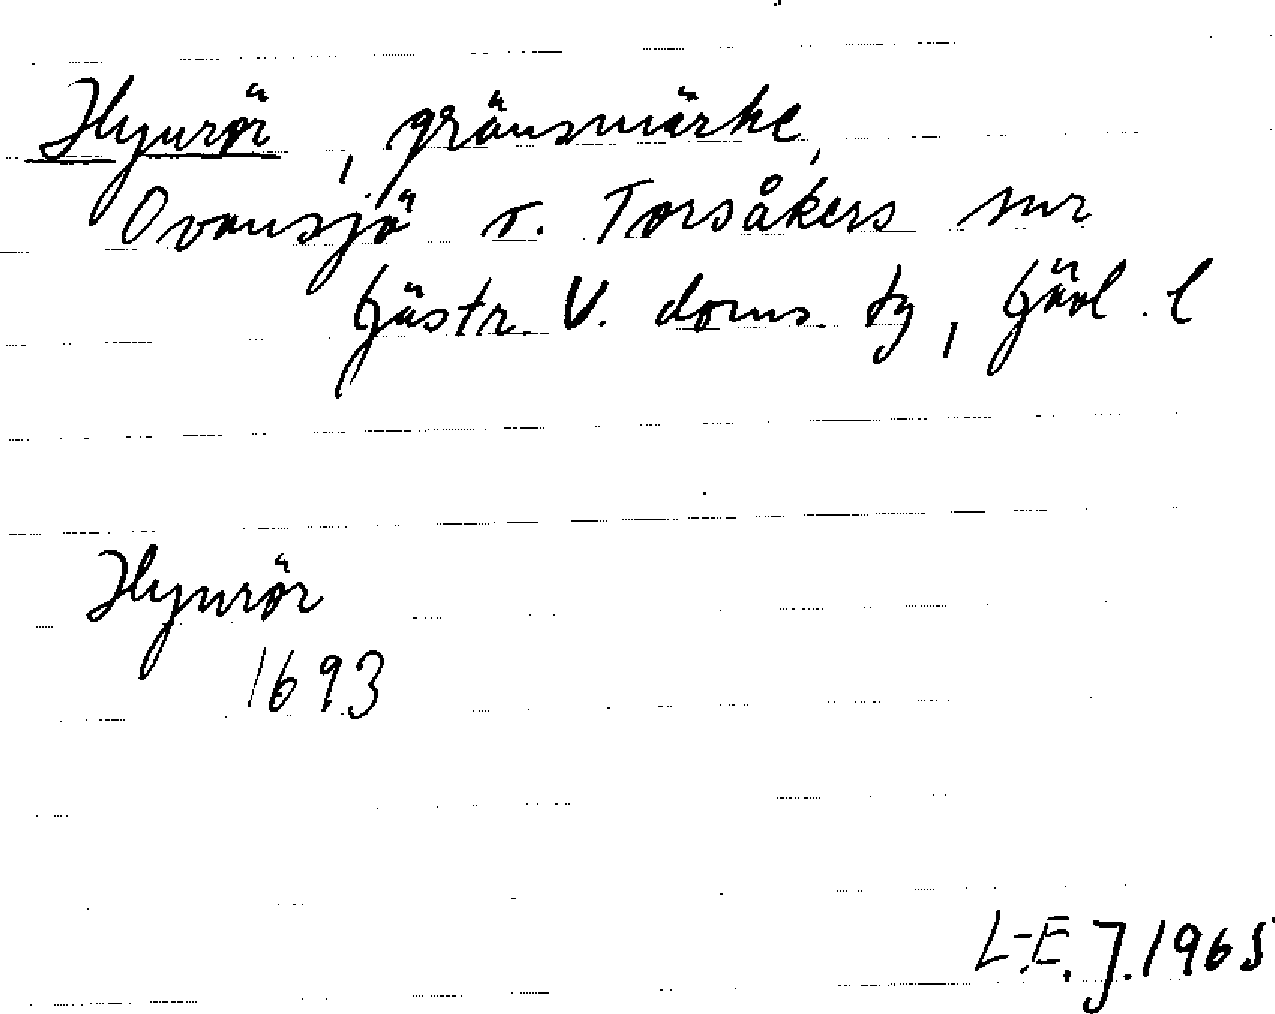 Hynrör, gränsmärke,
Ovansjö o. Torsåkers snr
Gästr. V. doms. tg, Gävl. l
Hynrör
1693
L-E. J. 1965